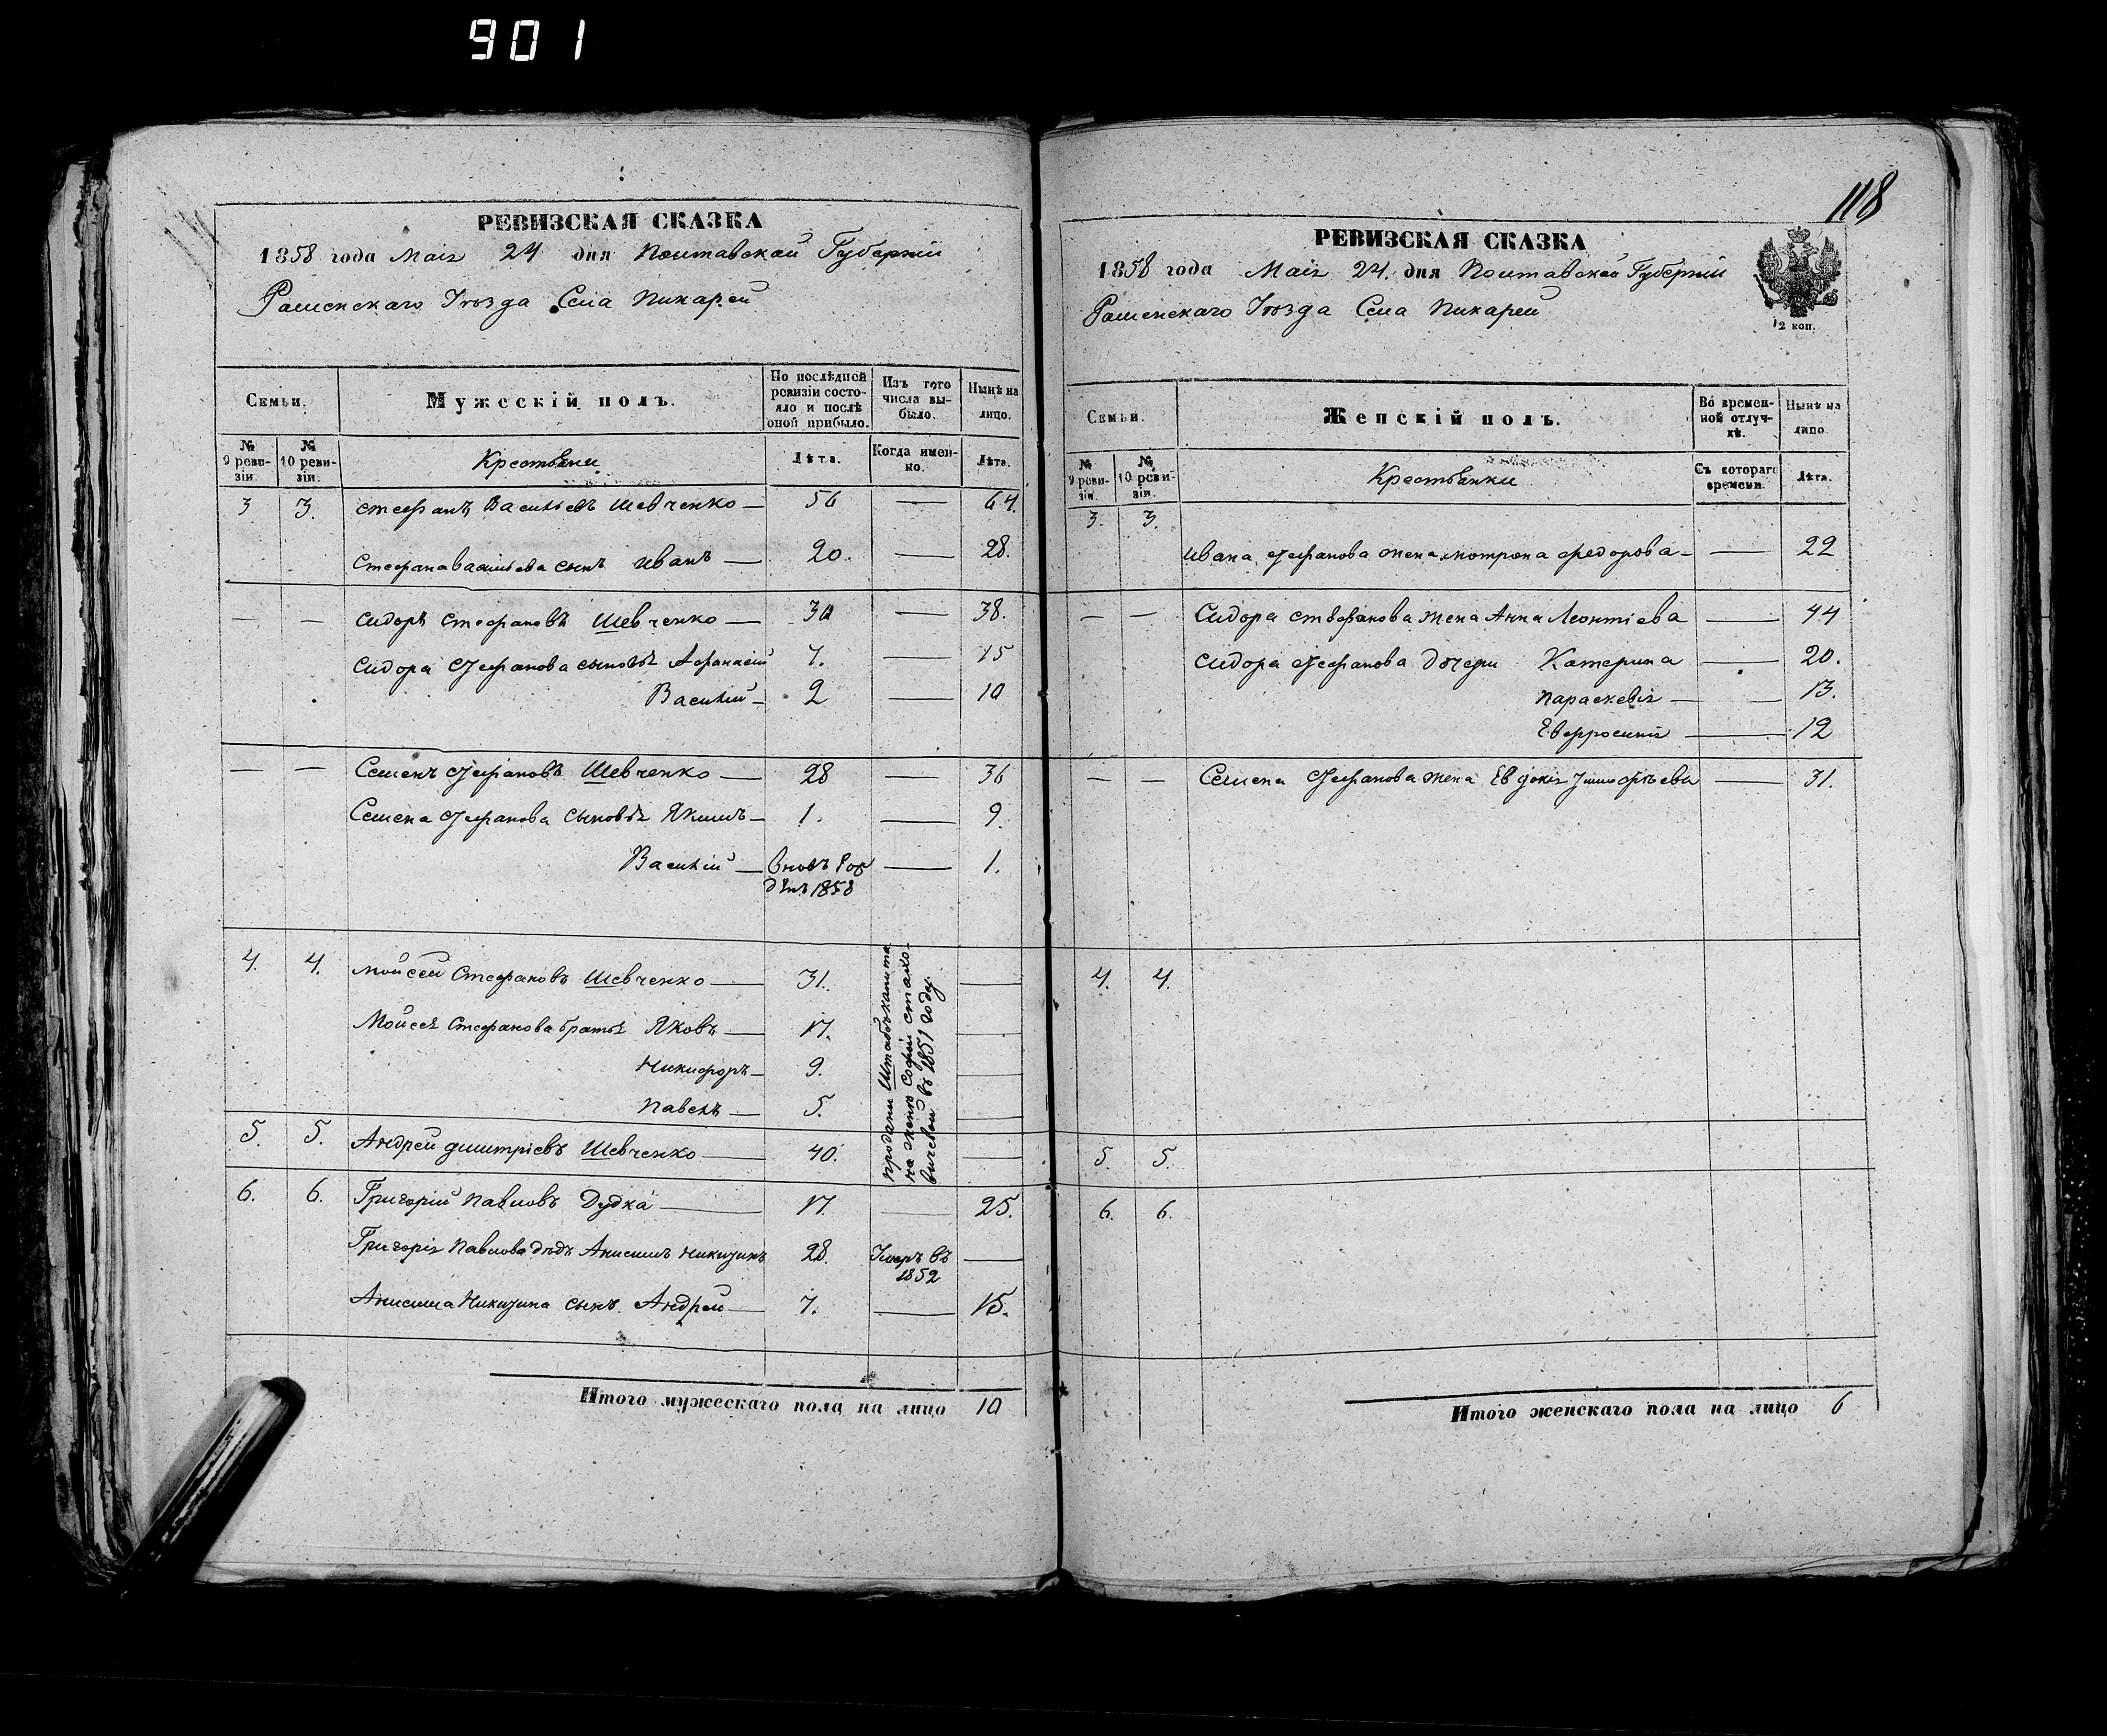 901
РЕВИЗСКАЯ СКАЗКА
1858 года Маія 24 дня Полтавской Губерніи
Роменскаго Уѣзда Села Пикарей
Семьи.
Мужескій полъ.
По послѣдней ревизіи состояло и послѣ оной прибыло.
Изъ того числа выбыло.
Нынѣ на лицо.
№ 9 ревизіи.
№ 10 ревизіи.
Крестьяни
Лѣта.
Когда именно.
Лѣта.
3 3. Стефанъ Васильевъ Шевченко — 56 — 64.
Стефана Васильева сынъ Иванъ — 20. — 28.
— — Сидоръ Стефановъ Шевченко — 30 — 38.
Сидора Стефанова сыновья Афанасій 7. — 15
Василій — 2 — 10
— — Семенъ Стефановъ Шевченко — 28 — 36
Семена Стефанова сыновья Якимъ — 1. — 9.
Василій — вновь рож — 1.
денъ 1858
4. 4. Мойсей Стефановъ Шевченко — 31. —
Мойсея Стефанова братья Яковъ — 17. —
Никифоръ — 9. —
Павелъ — 5. —
5. 5. Андрей Дмитріевъ Шевченко — 40. —
проданы Штабъ капита
на женѣ Софіи
вичевой въ 1851 году
6. 6. Григорій Павловъ Дудка — 17. — 25.
Григорія Павлова дядя Анисимъ Никитинъ 28. Умеръ въ —
1852
Анисима Никитина сынъ Андрей — 7. — 15.
Итого мужескаго пола на лицо 10
118
РЕВИЗСКАЯ СКАЗКА
1858 года Маія 24. дня Полтавской Губерніи
Роменскаго Уѣзда Села Пикарей
2 коп.
Семьи.
Женскій полъ.
Во временной отлучкѣ.
Нынѣ на лицо.
№ 9 ревизіи.
№ 10 ревизіи.
Крестьянки
Съ котораго времени.
Лѣта.
3. 3.
Ивана Стефанова жена Мотрона Федорова — — 22
— — Сидора Стефанова жена Анна Леонтіева — 44
Сидора Стефанова дочери Катерина — 20.
Параскевія — — 13.
Евфросинія — 12
— — Семена Стефанова жена Евдокія Тимофѣева — 31.
4. 4.
5. 5.
6. 6.
Итого женскаго пола на лицо 6